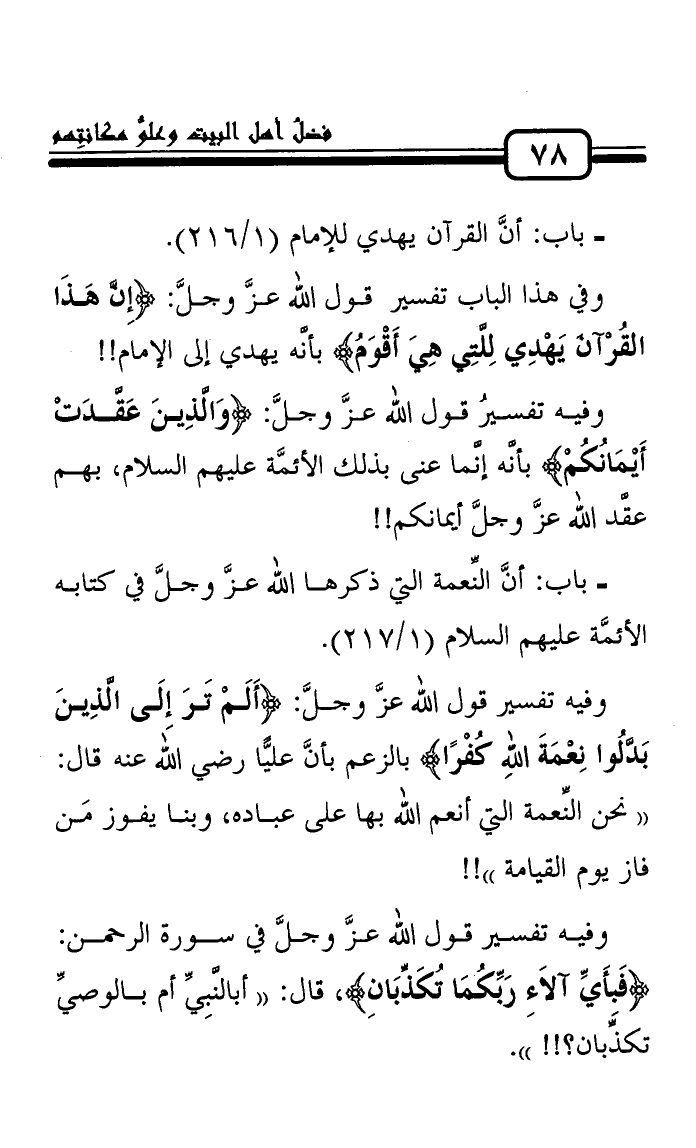 فضلُ أهل البيت وعلوُّ مكانتِهم
٧٨
- باب: أنَّ القرآن يهدي للإمام (٢١٦/١).
وفي هذا الباب تفسير قول الله عزَّ وجلَّ: ﴿إِنَّ هَذَا
القُرْآنَ يَهْدِي لِلَّتِي هِيَ أَقْوَمُ﴾ بأنَّه يهدي إلى الإمام!!
وفيه تفسيرُ قول الله عزَّ وجلَّ: ﴿وَالَّذِينَ عَقَّدَتْ
أَيْمَانُكُمْ﴾ بأنَّه إنَّما عنى بذلك الأئمَّة عليهم السلام، بهم
عقَّد الله عزَّ وجلَّ أيمانكم!!
- باب: أنَّ النِّعمة التي ذكرها الله عزَّ وجلَّ في كتابه
الأئمَّة عليهم السلام (٢١٧/١).
وفيه تفسير قول الله عزَّ وجلَّ: ﴿أَلَمْ تَرَ إِلَى الَّذِينَ
بَدَّلُوا نِعْمَةَ اللهِ كُفْرًا﴾ بالزعم بأنَّ عليًّا رضي الله عنه قال:
(( نحن النِّعمة التي أنعم الله بها على عباده، وبنا يفوز مَن
فاز يوم القيامة ))!!
وفيه تفسير قول الله عزَّ وجلَّ في سورة الرحمن:
﴿فَبِأَيِّ آلاَءِ رَبِّكُمَا تُكَذِّبَانِ﴾، قال: (( أبالنَّبِيِّ أم بالوصيِّ
تكذِّبان؟!! )).